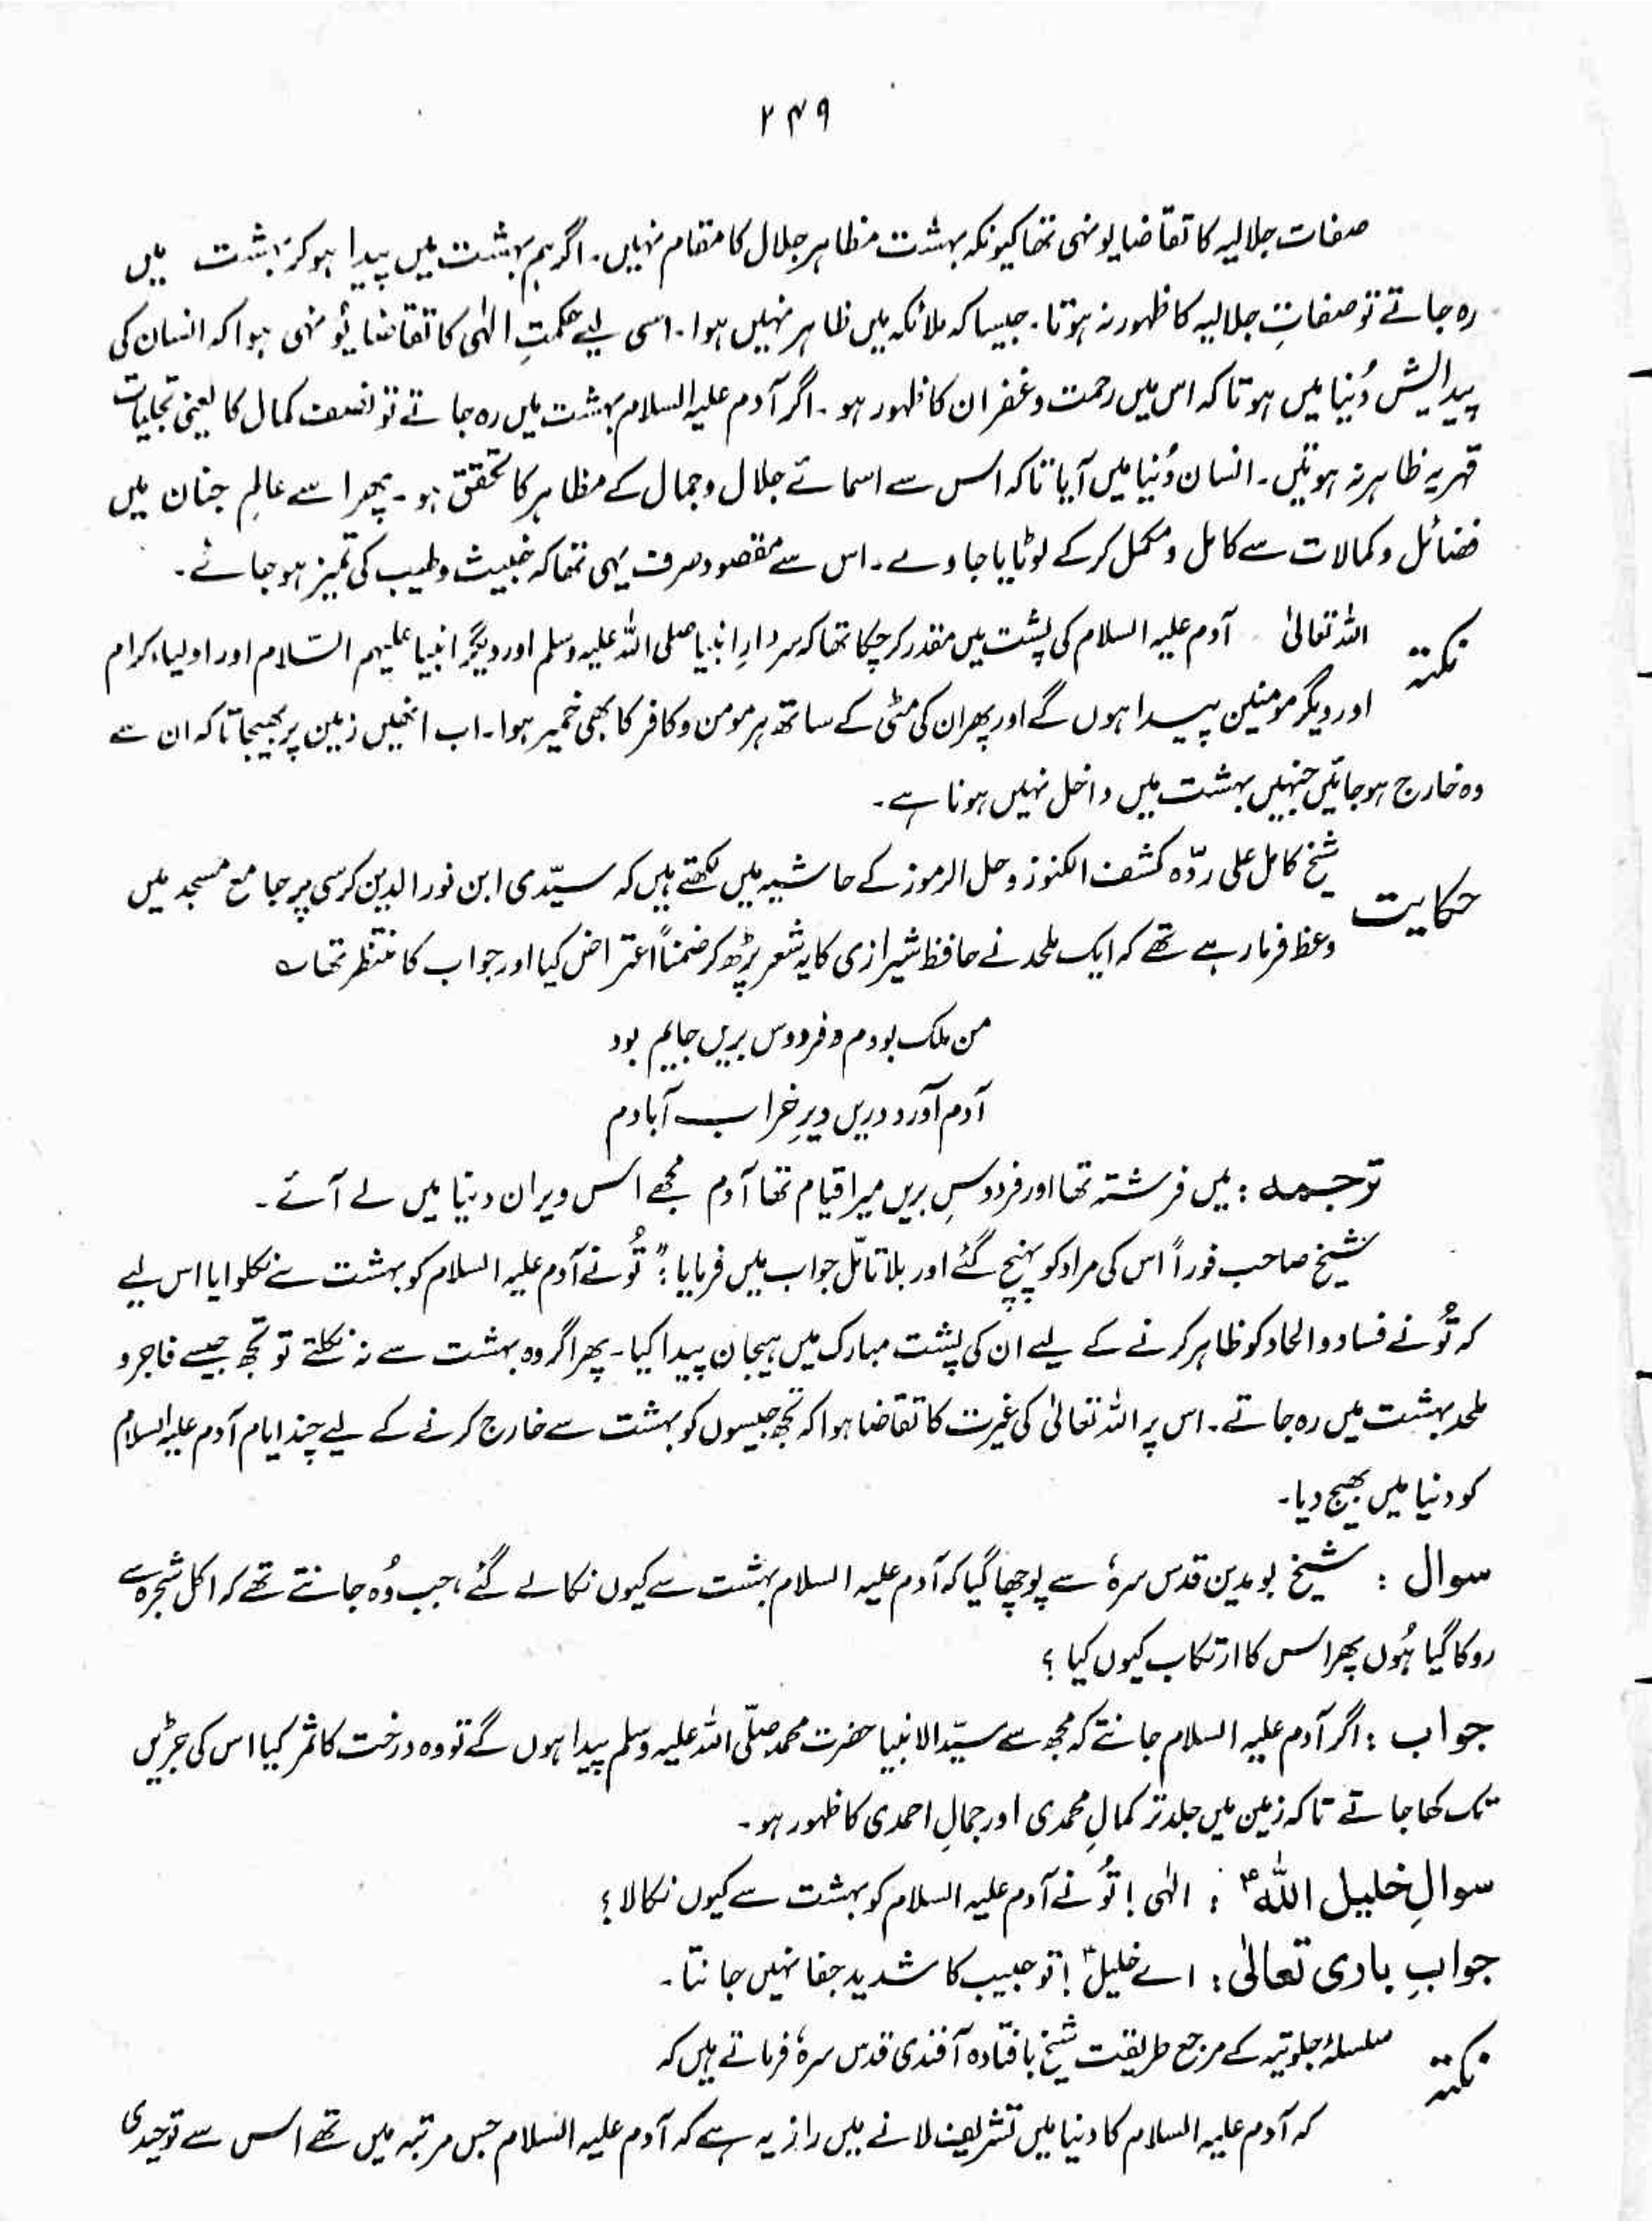 ۲۴۹
صفات جلالیہ کا تقاضا یونہی تھا کیونکہ بہشت مظاہر جلال کا مقام نہیں۔ اگر ہم بہشت میں پیدا ہو کر بہشت میں
رہ جاتے تو صفاتِ جلالیہ کا ظہور نہ ہوتا۔ جیسا کہ ملائکہ میں ظاہر نہیں ہوا۔ اسی لیے حکمتِ الٰہی کا تقاضا یُونہی ہوا کہ انسان کی
پیدایش دُنیا میں ہو تاکہ اس میں رحمت و غفران کا ظہور ہو۔ اگر آدم علیہ السلام بہشت میں رہ جاتے تو نصف کمال کا یعنی تجلیات
قہریہ ظاہر نہ ہوتیں۔ انسان دُنیا میں آیا تاکہ اس سے اسمائے جلال و جمال کے مظاہر کا تحقق ہو۔ پھر اسے عالمِ جنان میں
فضائل و کمالات سے کامل و مکمل کر کے لوٹایا جاوے۔ اس سے مقصود صرف یہی تھا کہ خبیث و طیب کی تمیز ہو جائے۔
نکتہ اللہ تعالیٰ آدم علیہ السلام کی پشت میں مقدر کر چکا تھا کہ سردارِ انبیا صلی اللہ علیہ وسلم اور دیگر انبیا علیہم السّلام اور اولیاء کرام
اور دیگر مومنین پیدا ہوں گے اور پھر ان کی مٹی کے ساتھ ہر مومن و کافر کا بھی خمیر ہوا۔ اب انھیں زمین پر بھیجا تاکہ ان سے
وہ خارج ہو جائیں جنہیں بہشت میں داخل نہیں ہونا ہے۔
حکایت شیخ کامل علی ردّہ کشف الکنوز وحل الرموز کے حاشیہ میں لکھتے ہیں کہ سیّدی ابن نور الدین کرسی پر جامع مسجد میں
وعظ فرما رہے تھے کہ ایک ملحد نے حافظ شیرازی کا یہ شعر پڑھ کر ضمناً اعتراض کیا اور جواب کا منتظر تھا ؎
من ملک بودم و فردوس بریں جایم بود
آدم آورد دریں دیرِ خراب آبادم
ترجمہ : میں فرشتہ تھا اور فردوسِ بریں میرا قیام تھا آدم مجھے اس ویران دنیا میں لے آئے۔
شیخ صاحب فوراً اس کی مراد کو پہنچ گئے اور بلا تامّل جواب میں فرمایا : "تُو نے آدم علیہ السلام کو بہشت سے نکلوایا اس لیے
کہ تُو نے فساد و الحاد کو ظاہر کرنے کے لیے ان کی پشت مبارک میں ہیجان پیدا کیا۔ پھر اگر وہ بہشت سے نہ نکلتے تو تجھ جیسے فاجر و
ملحد بہشت میں رہ جاتے۔ اس پر اللہ تعالیٰ کی غیرت کا تقاضا ہوا کہ تجھ جیسوں کو بہشت سے خارج کرنے کے لیے چند ایام آدم علیہ السلام
کو دنیا میں بھیج دیا۔
سوال : شیخ بو مدین قدس سرہٗ سے پوچھا گیا کہ آدم علیہ السلام بہشت سے کیوں نکالے گئے، جب وُہ جانتے تھے کہ اکل شجرہ سے
روکا گیا ہُوں پھر اس کا ارتکاب کیوں کیا ؟
جواب : اگر آدم علیہ السلام جانتے کہ مجھ سے سیّد الانبیا حضرت محمد صلّی اللہ علیہ وسلم پیدا ہوں گے تو وہ درخت کا ثمر کیا اس کی جڑیں
تک کھا جاتے تاکہ زمین میں جلد تر کمالِ محمدی اور جمالِ احمدی کا ظہور ہو۔
سوالِ خلیل اللہؑ : الٰہی ! تُو نے آدم علیہ السلام کو بہشت سے کیوں نکالا ؟
جوابِ باری تعالیٰ : اے خلیلؑ ! تو حبیب کا شدید جفا نہیں جانتا۔
نکتہ سلسلۂ جلوتیہ کے مرجع طریقت شیخ بافتادہ آفندی قدس سرہٗ فرماتے ہیں کہ
کہ آدم علیہ السلام کا دنیا میں تشریف لانے میں راز یہ ہے کہ آدم علیہ السلام جس مرتبہ میں تھے اس سے توحیدی